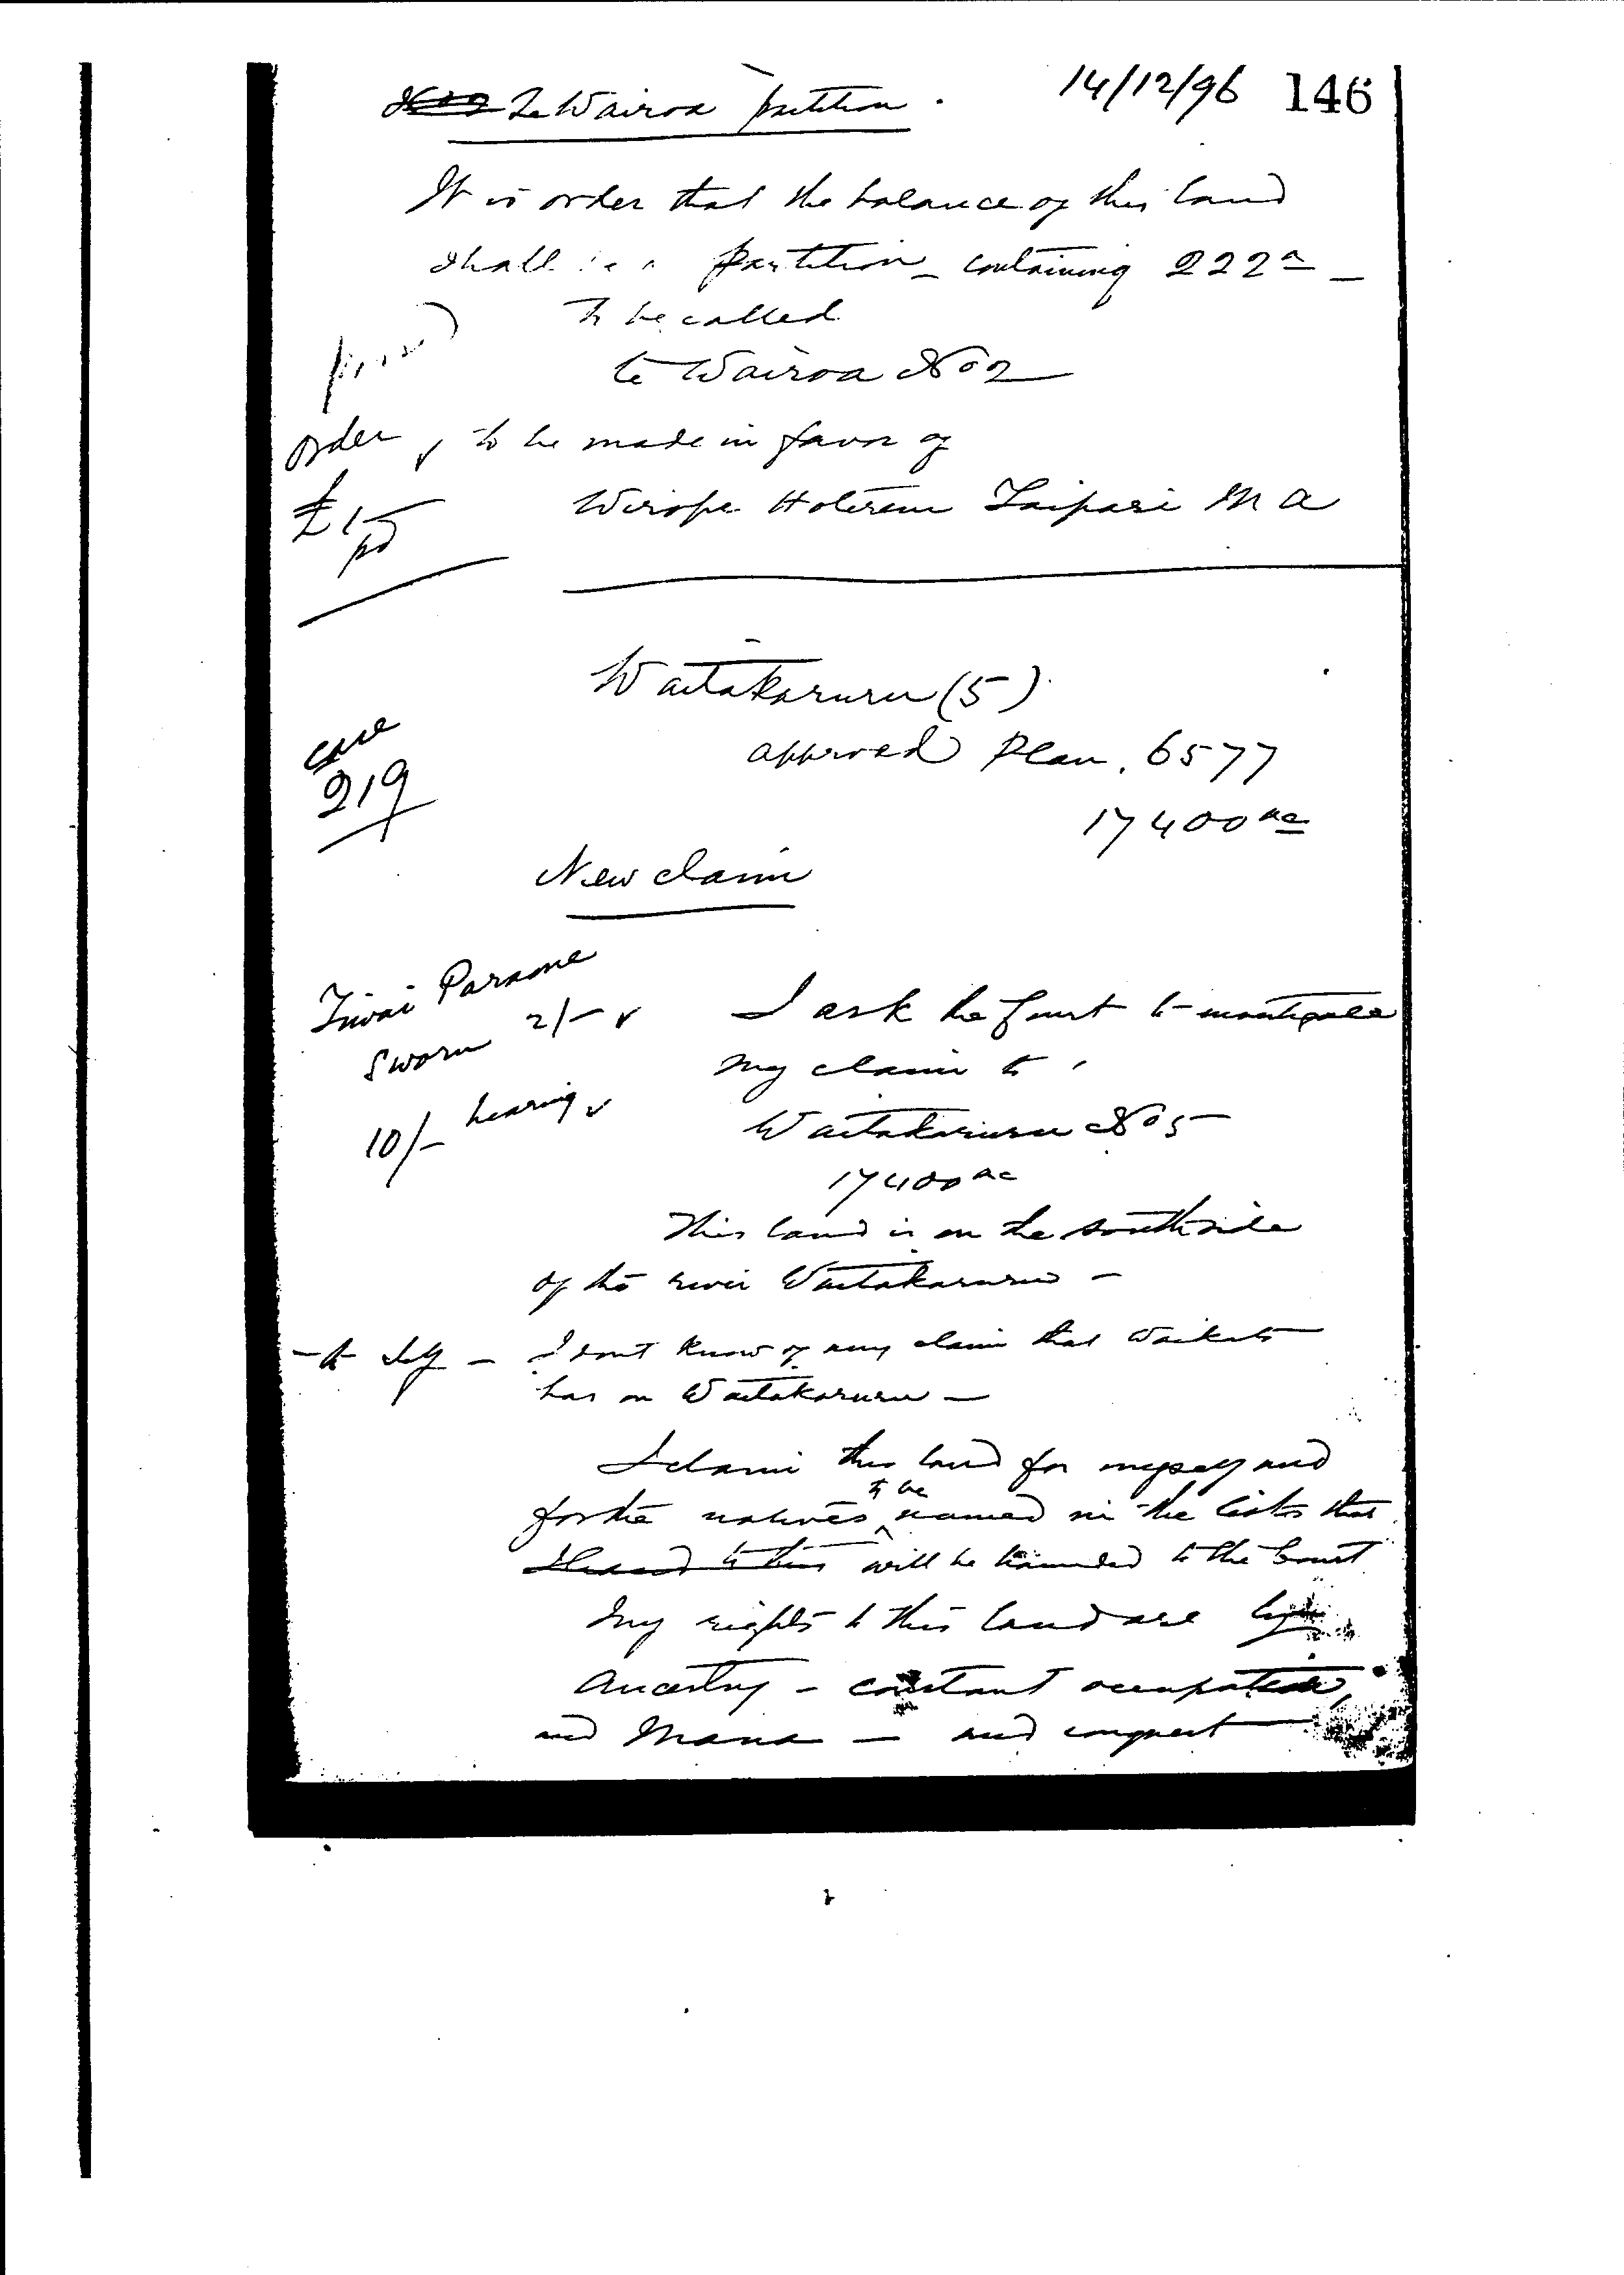 Te Wairoa partition.
14/12/96 146
It is order that the balance of this land
shall be a Partition - containing 222a -
To be called
te Wairoa No 2
order to be made in favor of
£1
pd
Wirope Hoterene Taipari M a
Waitakaruru (5)
approved Plan. 6577
17400 ac
case
219
New claim
Tiwai Paraone
Sworn 2/-
10/- hearing
I ask the Court to investigate
my claim to
Waitakaruru No 5
17400 ac
This land is on the south side
of the river Waitakaruru -
- I dont know of any claim that Waikato
has on Waitakaruru -
I claim this land for myself and
for the natives to be named in the lists that
will be handed to the Court
My rights to this land are by
Ancestry - constant occupation,
and Mana - and conquest